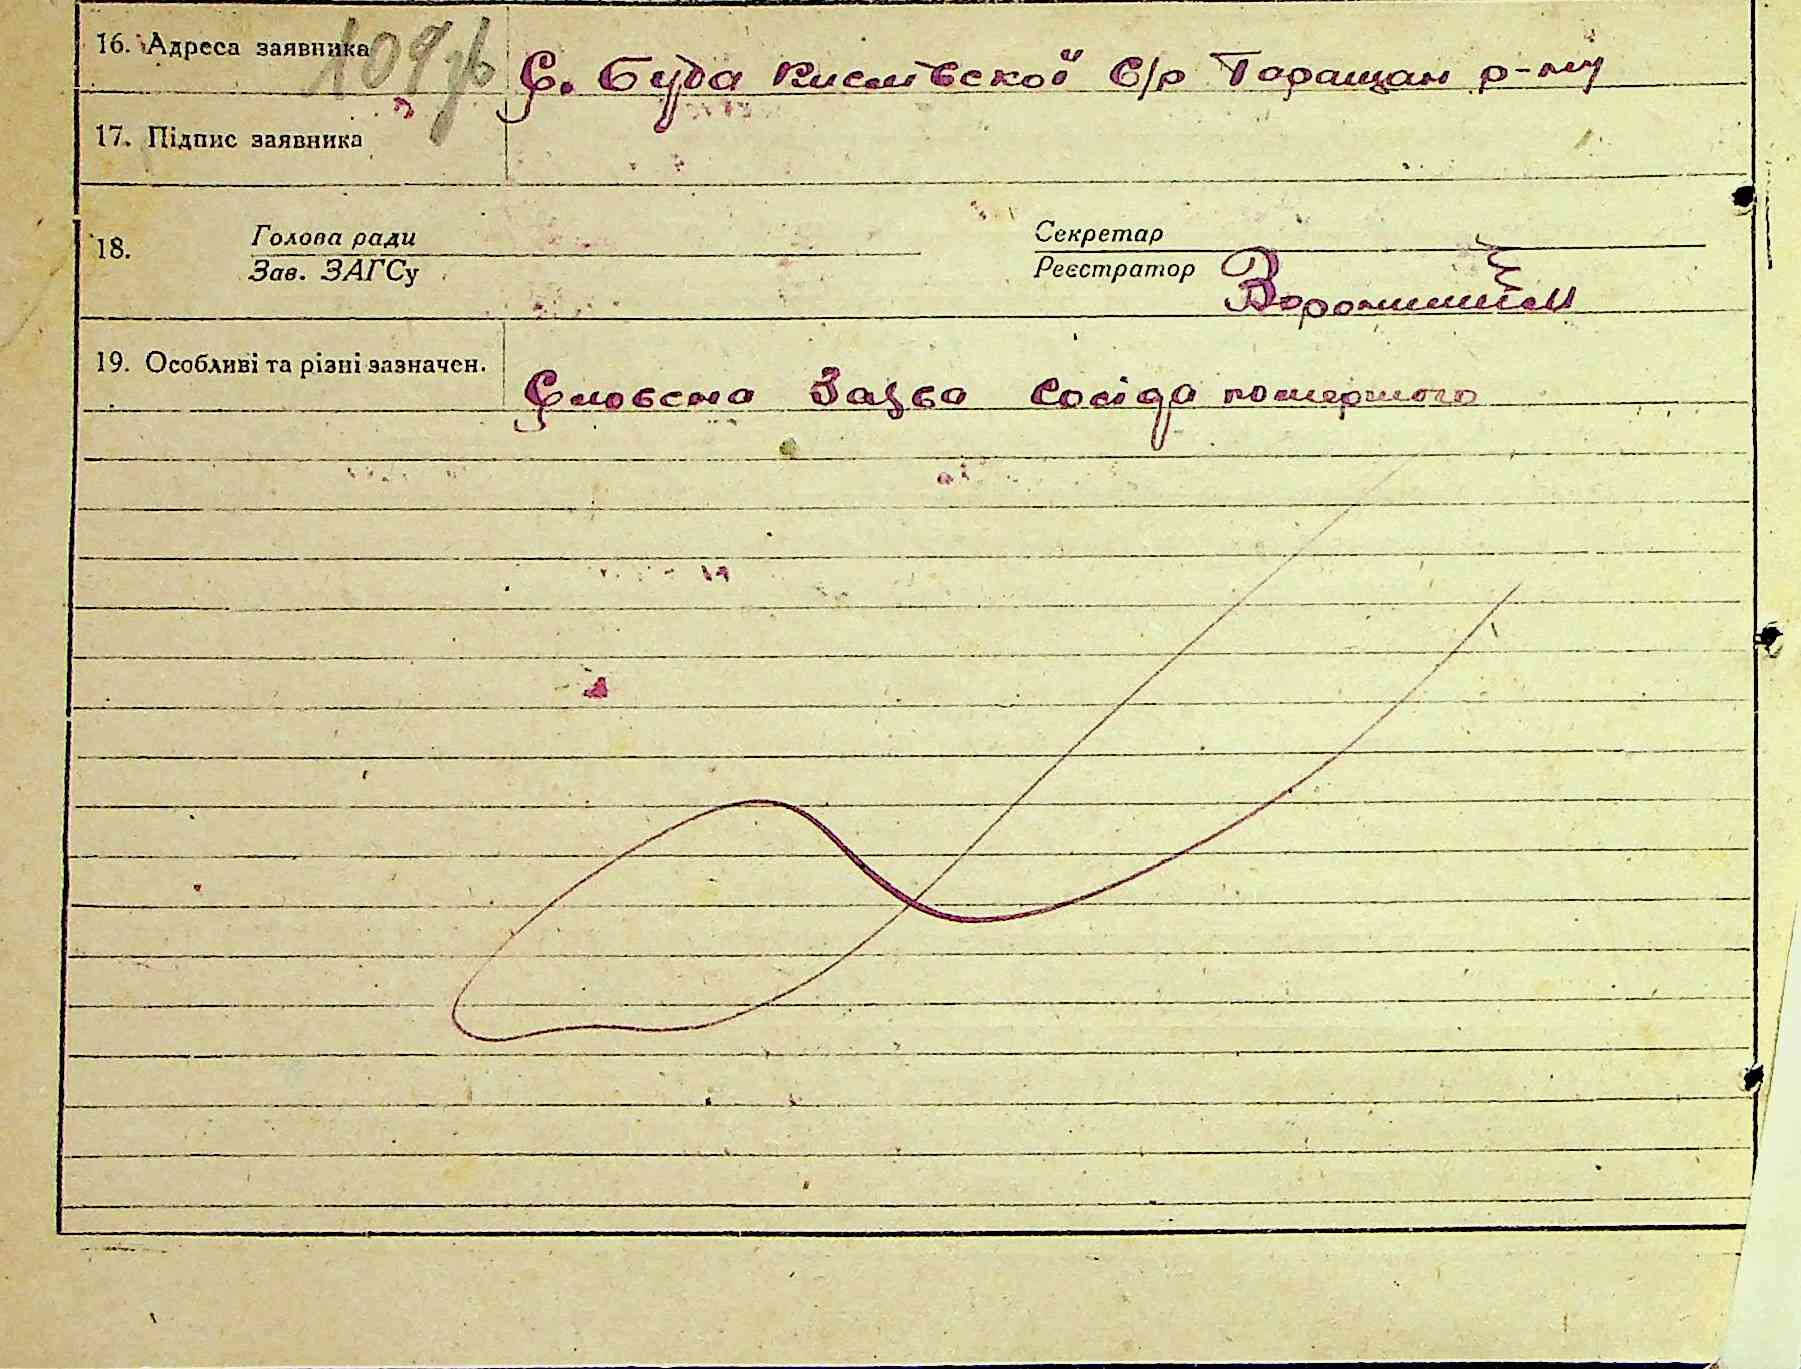 16. Адреса заявника С. Буда Кислівської с/р Таращан р-ну
109 зв
17. Підпис заявника
18. Голова ради Секретар
Зав. ЗАГСу Реєстратор
19. Особливі та різні зазначен. Словесна Заява сосіда помершого